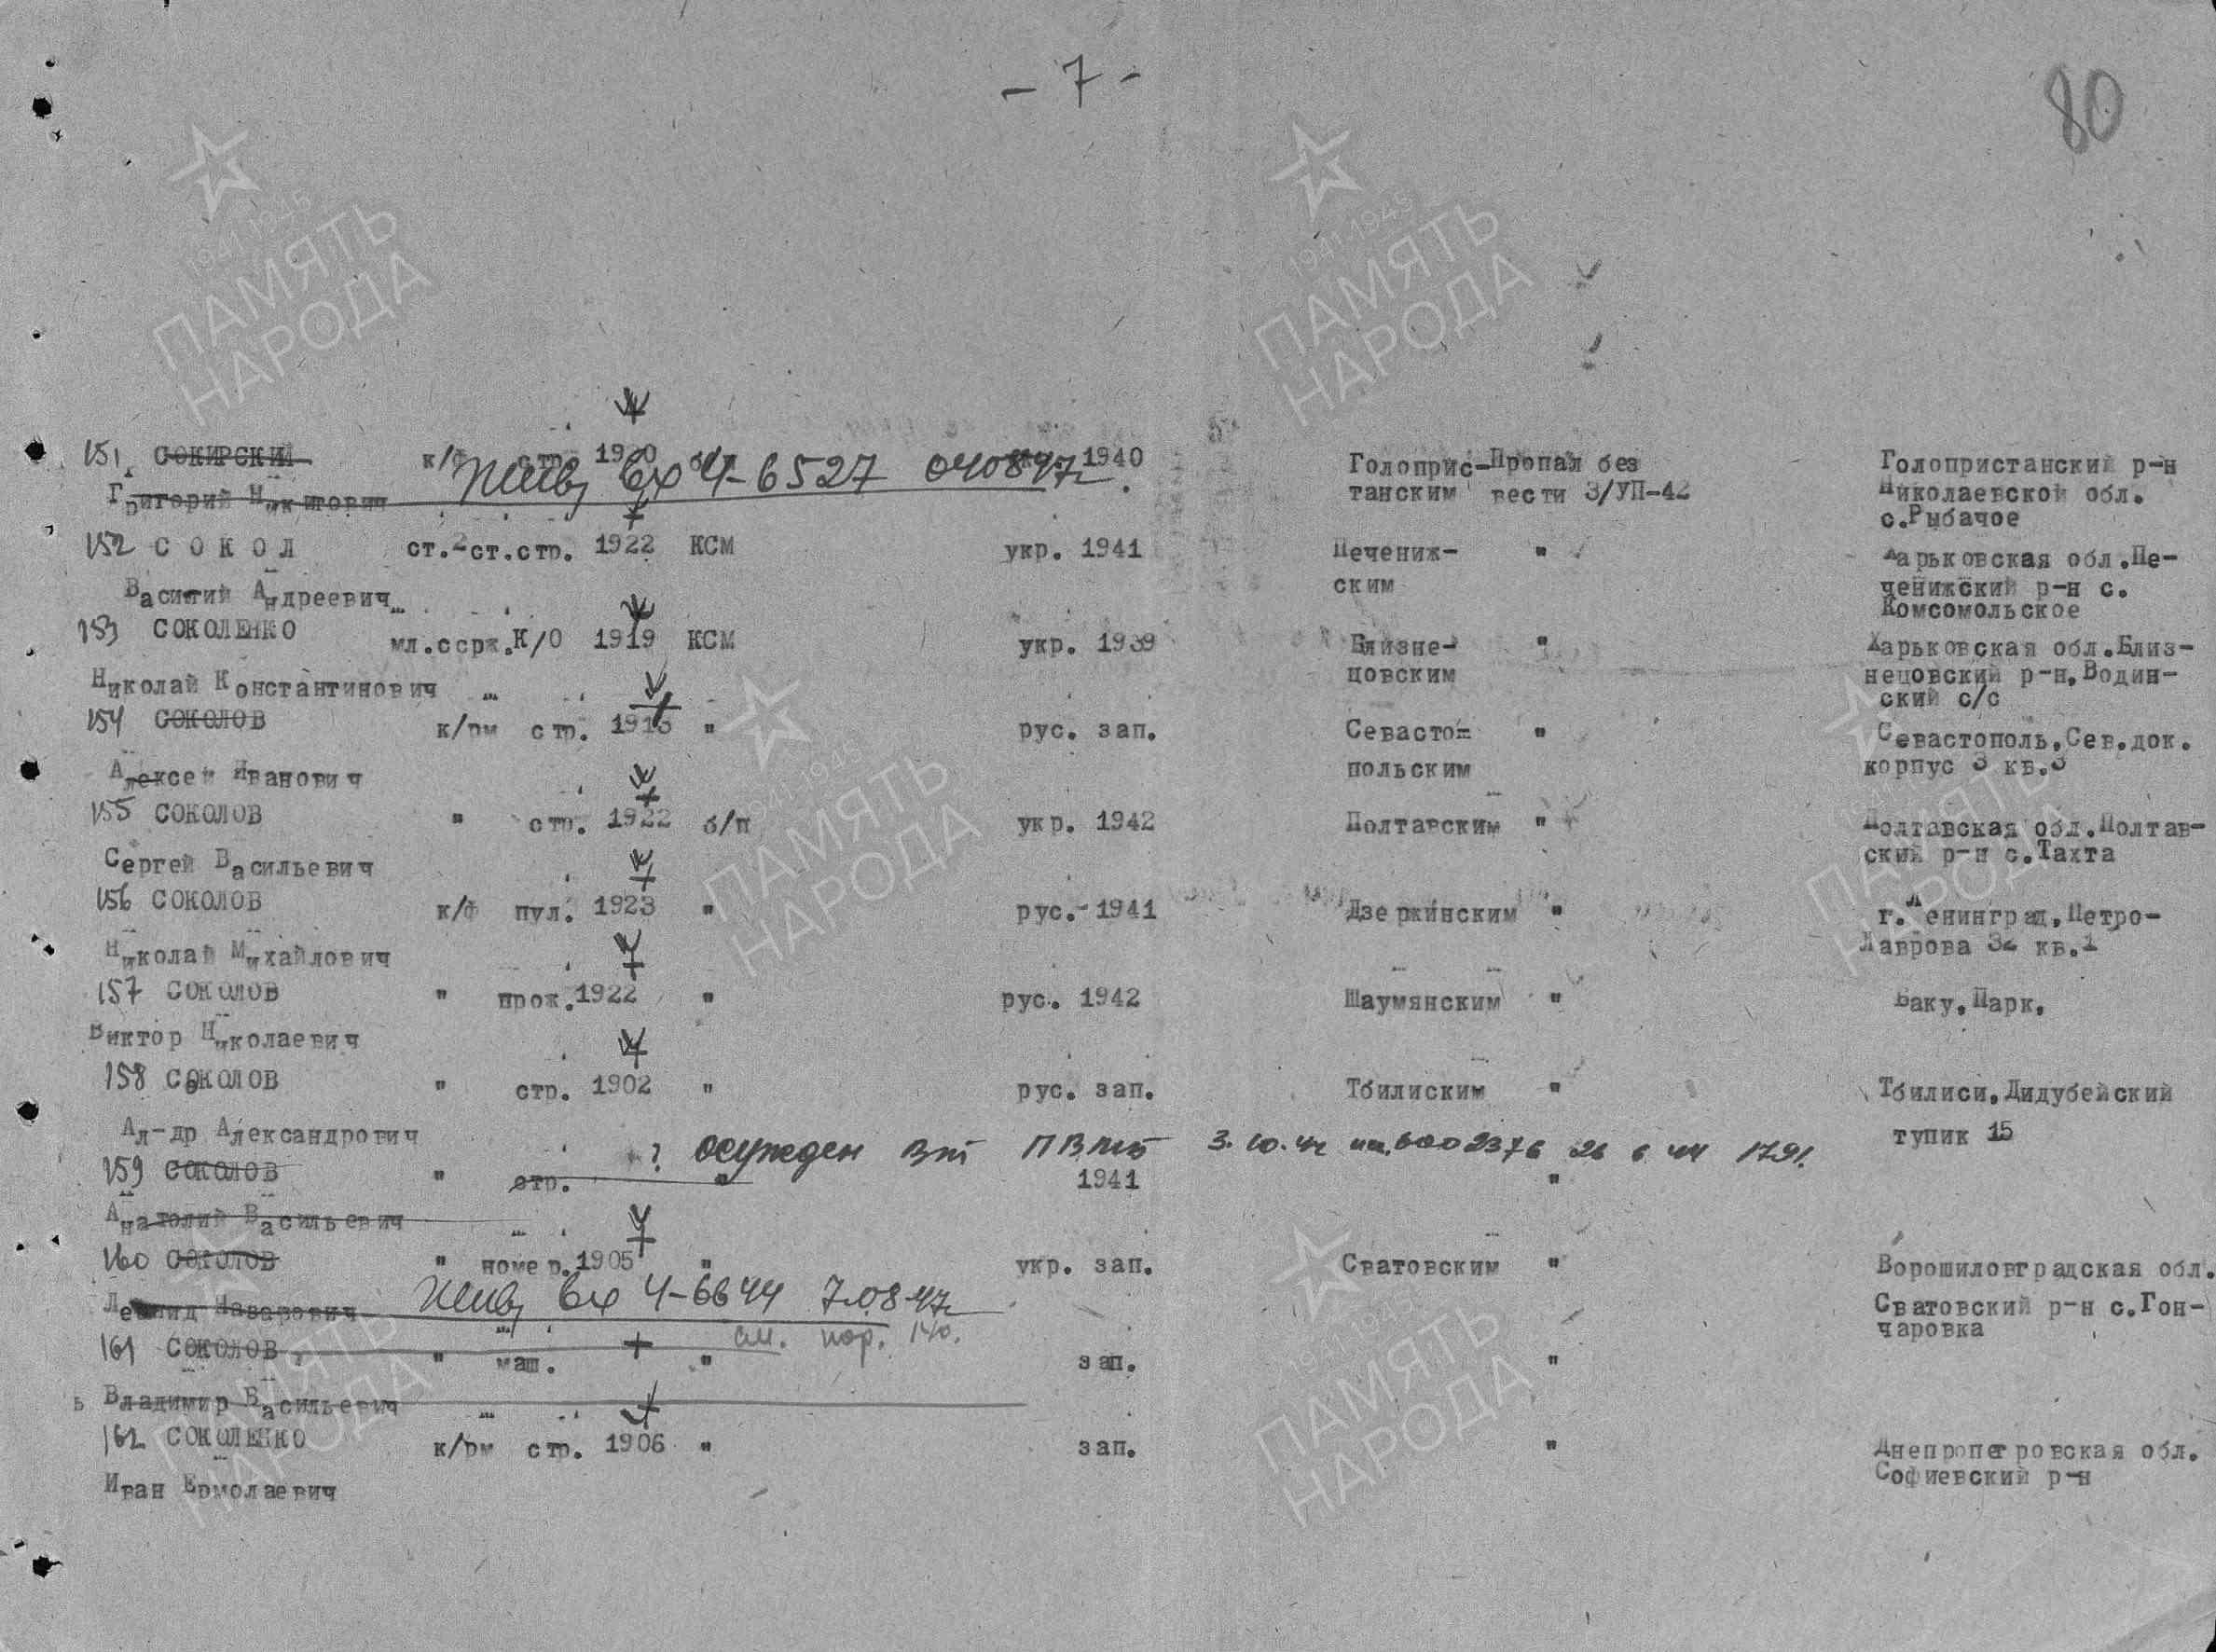 - 7 -
80
151 СОКИРСКИЙ к/ф стр. 1920 1940 Голоприс- Пропал без Голопристанский р-н
жив вх 4-6527 040847г.
Григорий Никитович танским вести 3/УП-42 Николаевской обл.
с.Рыбачое
152 С О К О Л ст.2ст.стр. 1922 КСМ укр. 1941 Печениж- " Харьковская обл.Пе-
Василий Андреевич ским ченижский р-н с.
Комсомольское
153 СОКОЛЕНКО мл.серж.К/О 1919 КСМ укр. 1939 Близне- " Харьковская обл.Близ-
Николай Константинович цовским нецовский р-н,Водин-
ский с/с
154 СОКОЛОВ к/рм стр. 1913 " рус. зап. Севасто- " Севастополь,Сев.док.
Алексей Иванович польским корпус 3 кв.3
155 СОКОЛОВ " стр. 1922 б/п укр. 1942 Полтавским " Полтавская обл.Полтав-
Сергей Васильевич ский р-н с.Тахта
156 СОКОЛОВ к/ф пул. 1923 " рус. 1941 Дзержинским " г.Ленинград,Петро-
Николай Михайлович Лаврова 32 кв.1
157 СОКОЛОВ " прож.1922 " рус. 1942 Шаумянским " Баку,Парк.
Виктор Николаевич
158 СОКОЛОВ " стр. 1902 " рус. зап. Тбилиским " Тбилиси,Дидубейский
Ал-др Александрович тупик 15
? осужден 3.10.42 26 6 44
159 СОКОЛОВ " стр. " 1941 "
Анатолий Васильевич
160 СОКОЛОВ " номер.1905 " укр. зап. Сватовским " Ворошиловградская обл.
жив вх 4-6644 7.08.47г
Леонид Назарович Сватовский р-н с.Гон-
чаровка
см. пор. 140.
161 СОКОЛОВ " маш. " зап. "
Владимир Васильевич
162 СОКОЛЕНКО к/рм стр. 1906 " зап. " Днепропетровская обл.
Иван Ермолаевич Софиевский р-н
1941 1945
ПАМЯТЬ
НАРОДА
1941 1945
ПАМЯТЬ
НАРОДА
1941 1945
ПАМЯТЬ
НАРОДА
ПАМЯТЬ
НАРОДА
ПАМЯТЬ
НАРОДА
1941 1945
ПАМЯТЬ
НАРОДА